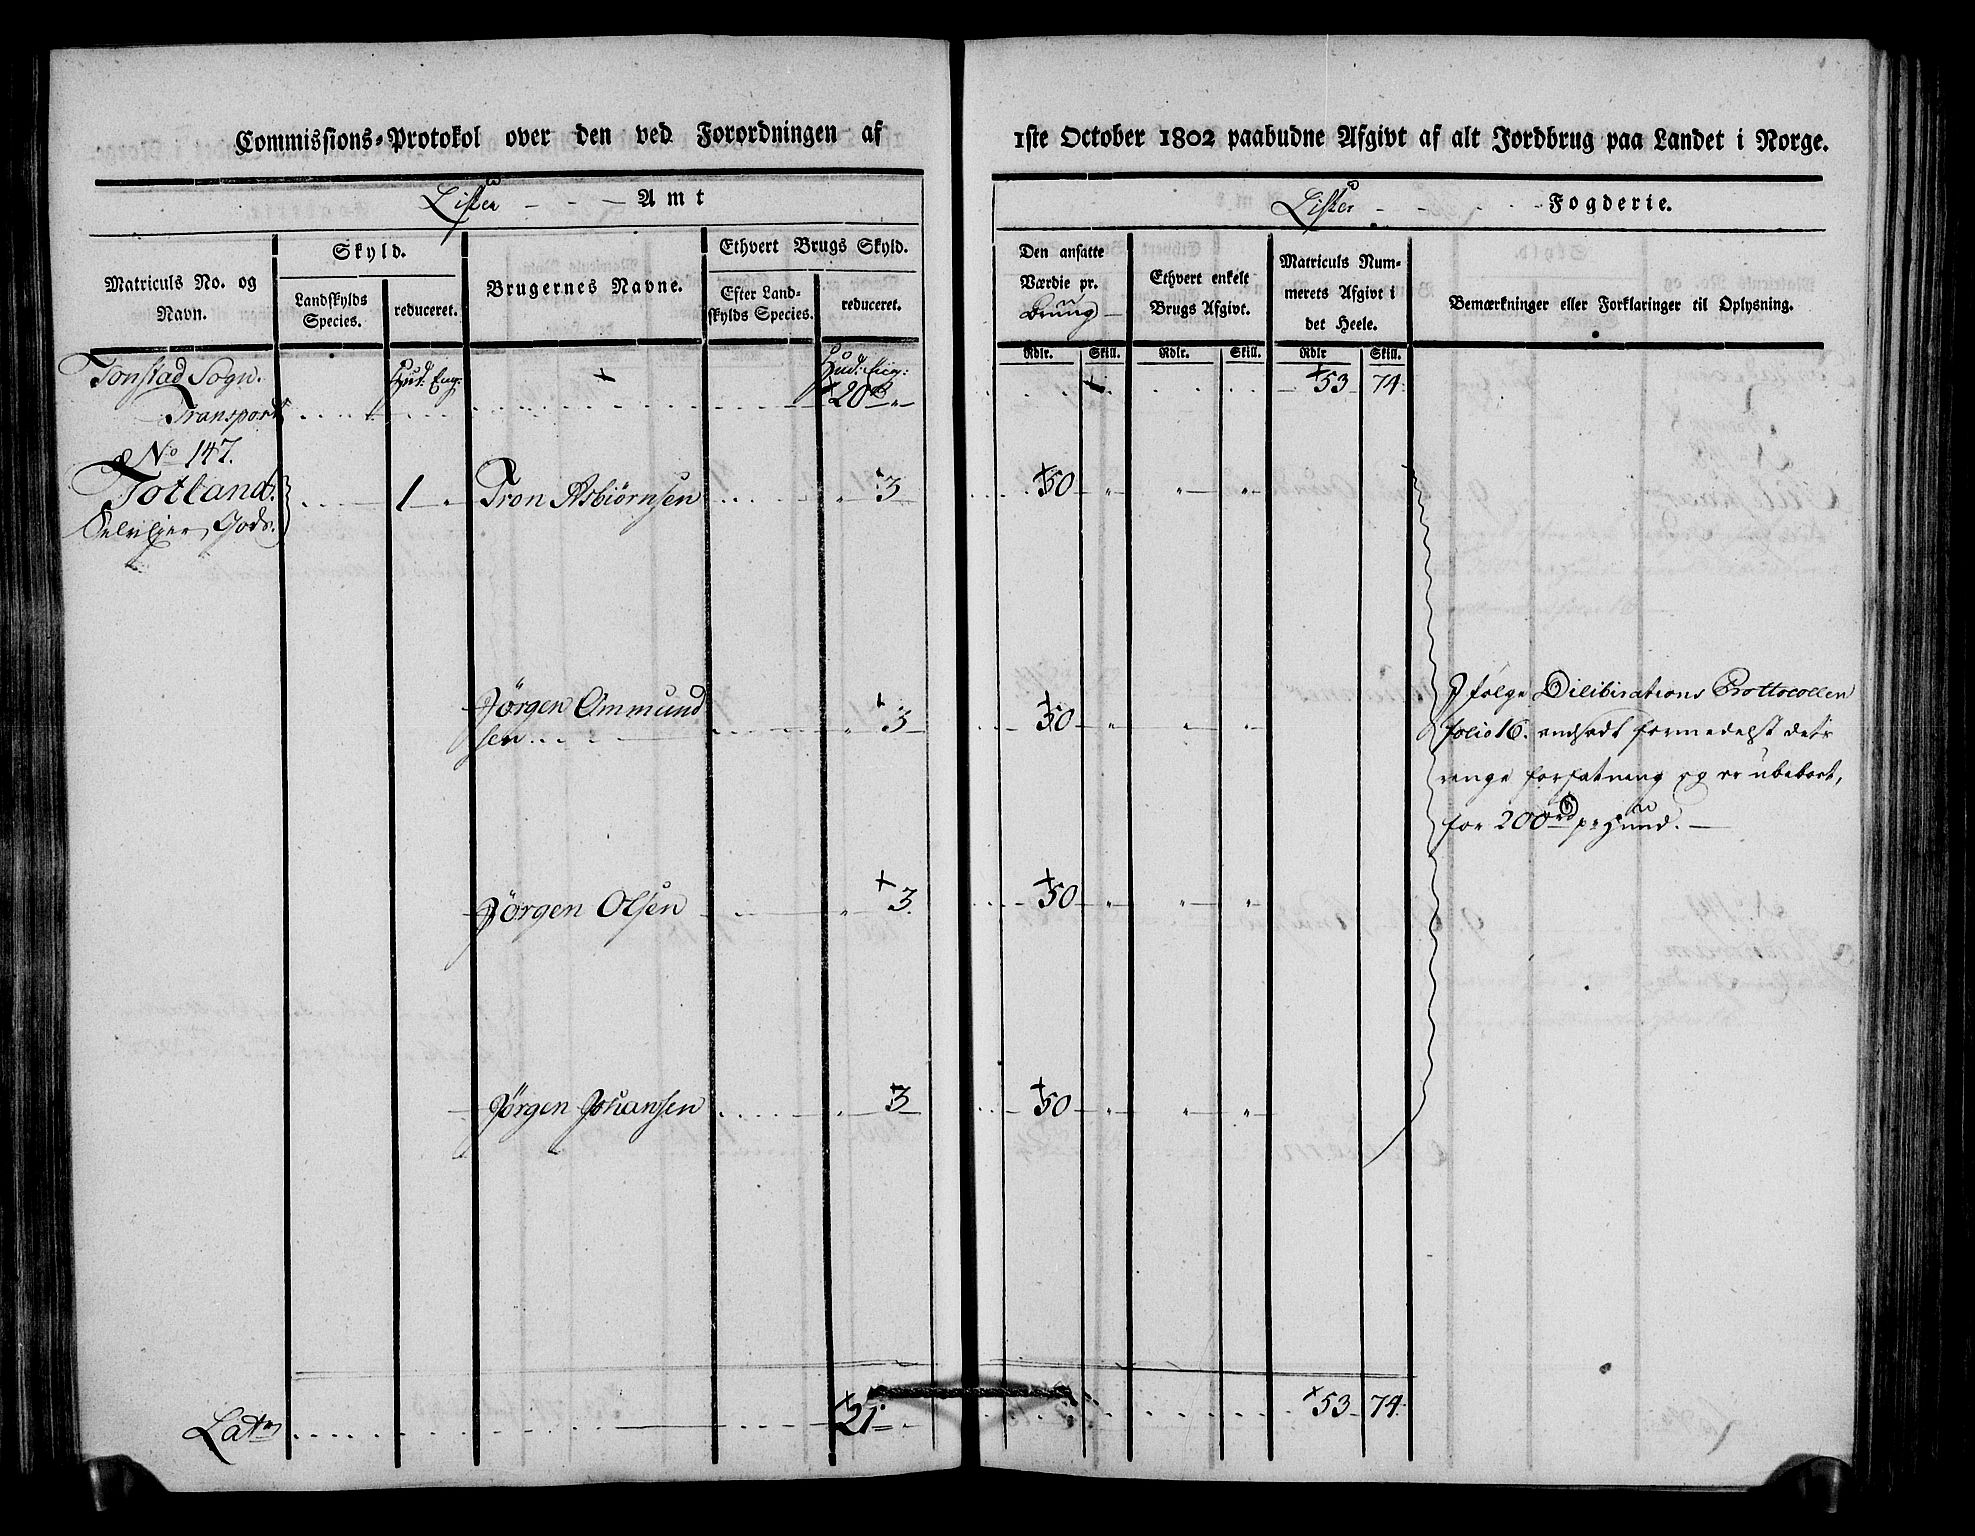 Commissions-Protokol over den ved Forordningen af
1ste October 1802 paabudne Afgivt af alt Jordbrug paa Landet i Norge.
Lister - - - Amt
Lister - - - Fogderie.
Matriculs No. og Navn.
Skyld.
Landskylds Species.
reduceret.
Brugernes Navne.
Ethvert Brugs Skyld.
Efter Landskylds Species.
reduceret.
Den ansatte Værdie pr. Brug
Ethvert enkelt Brugs Afgivt.
Matriculs Nummerets Afgivt i det Heele.
Bemærkninger eller Forklaringer til Oplysning.
Rdlr. Skill. Rdlr. Skill. Rdlr Skill.
Tonstad Sogn. Hud: Eng: Hud: Eng:
Transport 20 53 74
No 147.
Totland. 1 Tron Asbiørnsen 3 50
Selveyer Gods.
Jörgen Ommund
sen 3 50
Jfølge Dilibirations Prottocollen
folio 16. andsadt formedelst dets
ringe forfatning og er ubeboet,
for 200 rd pr Hud.
Jörgen Olsen 3. 50
Jörgen Johansen 3 50
Lats 21 53 74